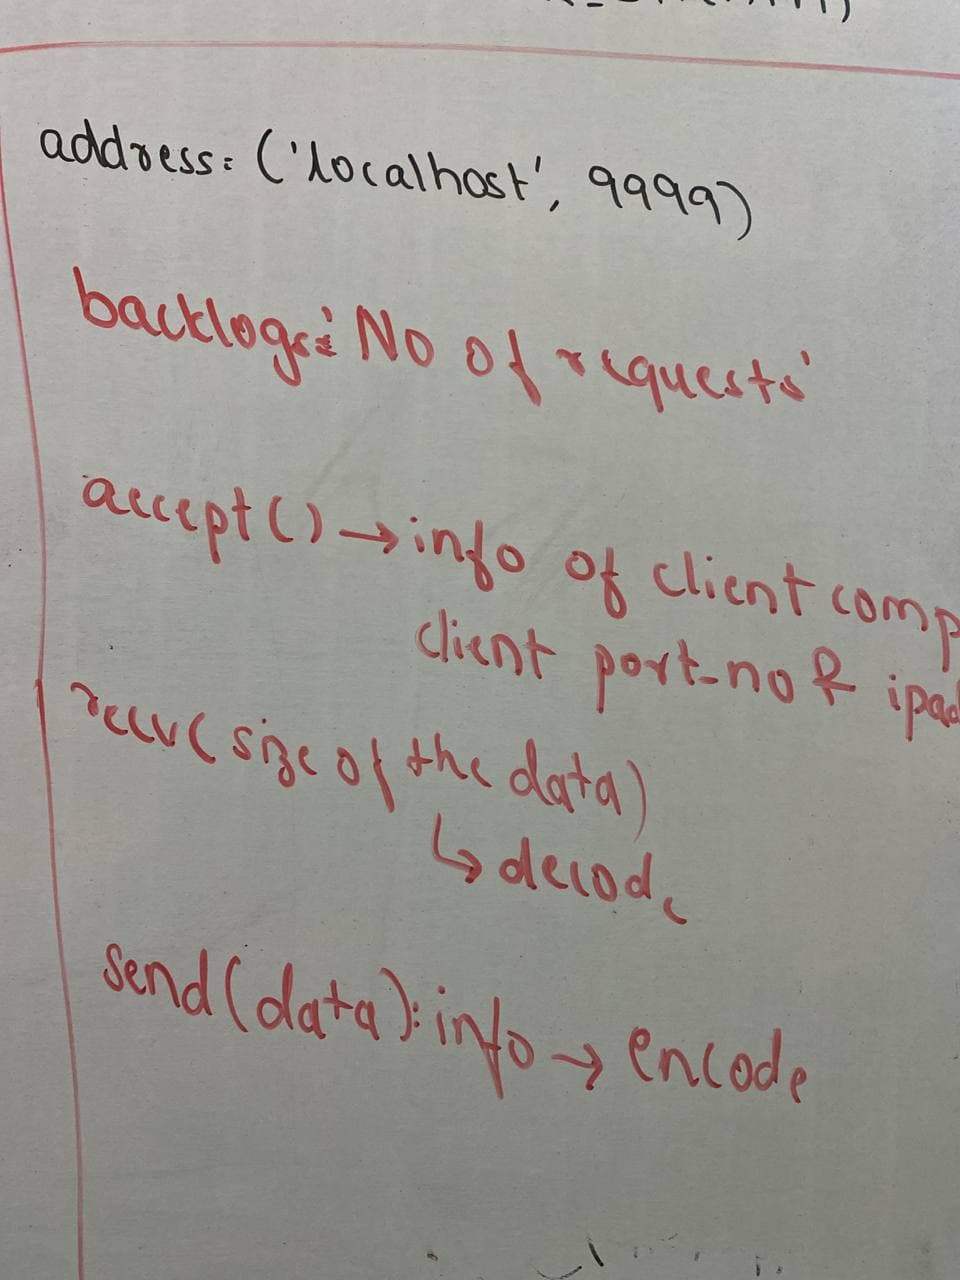 address= ('localhost', 9999)
backlogs: No of requests
accept() → info of client comp
client port-no & ipad
recv(size of the data)
↳ decode
send(data): info → encode